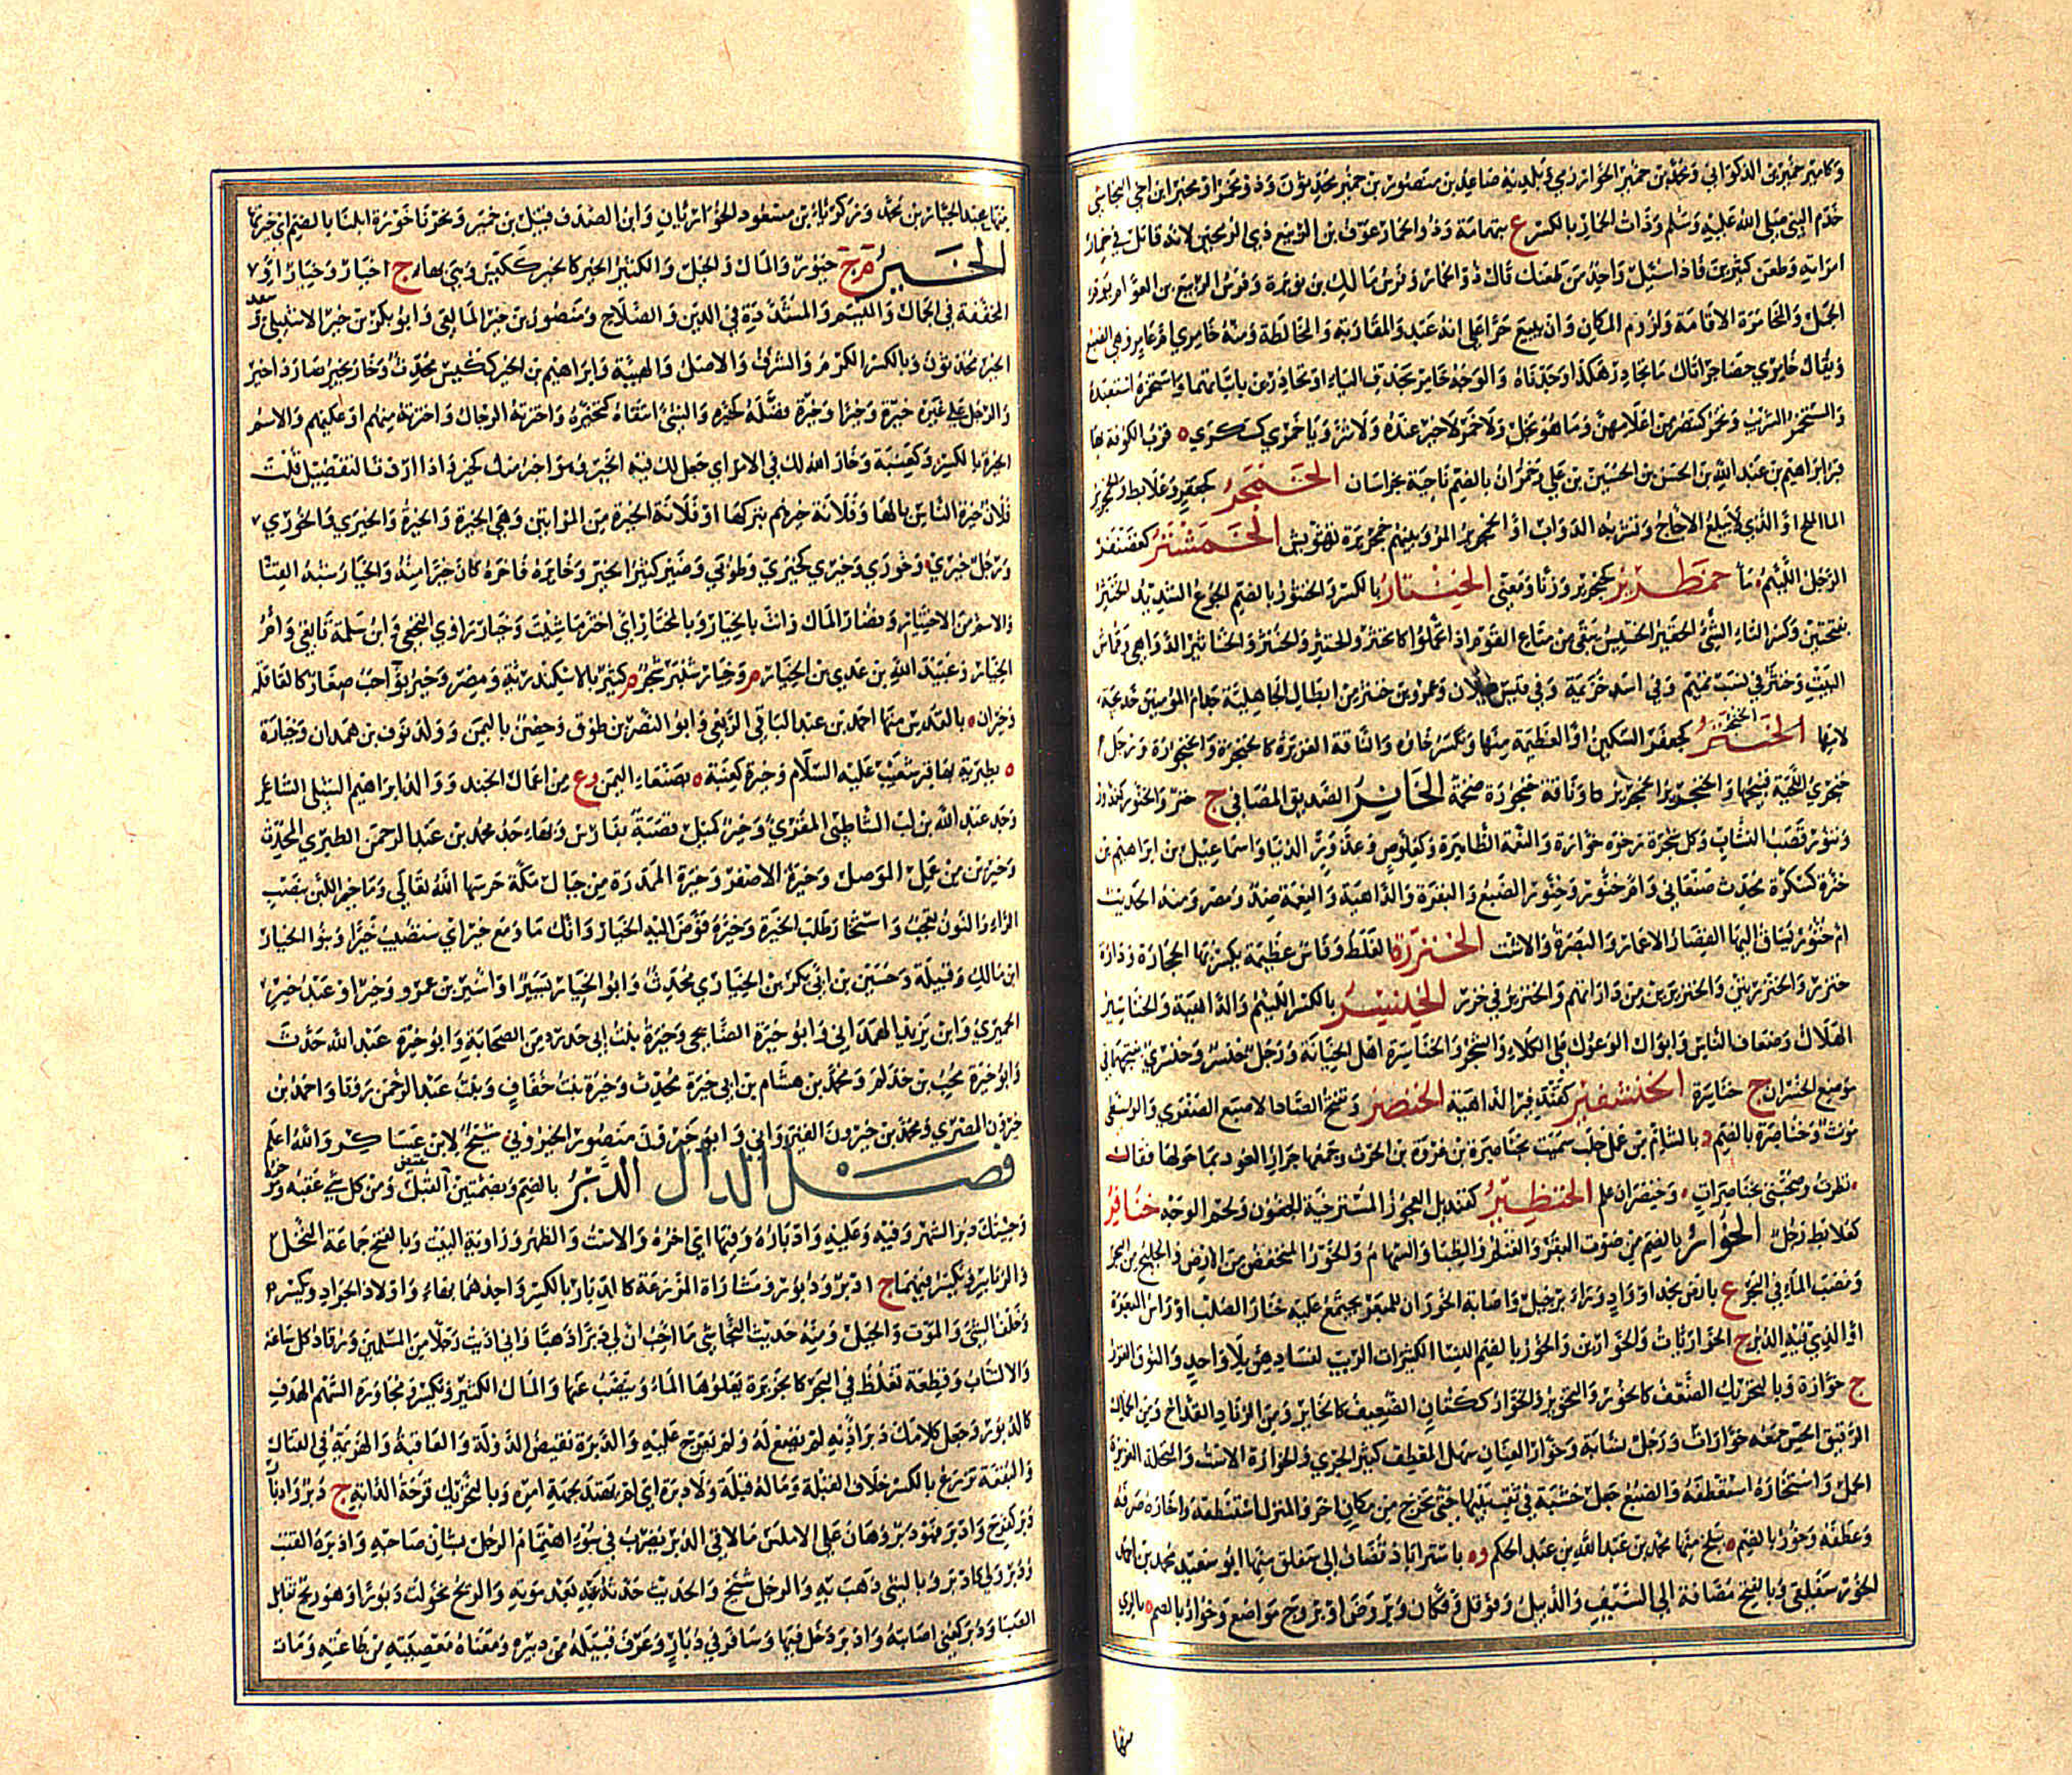 وكامير خمير بن الذكواني ومحمد بن خمير الخوارزمي وبلديه صاعد بن منصور بن خمير محدثون وذو مخمر او مخبر ابن اخي النجاشي
خدم النبي صلى الله عليه وسلم وذات الخمار بالكسر ع بتهامة وذو الخمار عوف بن الربيع ذي الرمحين لانه قاتل في خمار
امراته وطعن كثيرين فاذا سئل واحد من طعنك قال ذو الخمار وفرس مالك بن نويرة وفرس الزبير بن العوام يوم
الجمل والمخامرة الاقامة ولزوم المكان وان يبيع حرا على انه عبد والمقاربة والمخالطة ومنه خامري ام عامر وهي الضبع
ويقال خامري حضاجر اتاك ما تحاذر هكذا وجدناه والوجه خامر بحذف الياء او تحاذرين باثباتها واستخمره استعبده
والمستخمر الشريب وتخمر كتنصر من اعلامهن وما هو بخل ولا خمر لا خير عنده ولا شر وباخمري كسكري ه قرب الكوفة بها
قبر ابراهيم بن عبد الله بن الحسن بن الحسين بن علي وخمران بالضم ناحية بخراسان الخمجر كجعفر وعلابط
الماء الملح او الذي لا يبلغ الاجاج وتشربه الدواب او الخمجرير المر وبينهم خمجريرة تهويش الخمشتر كغضنفر
الرجل اللئيم ماء خمطرير كخمجرير وزنا ومعنى الخنتار بالكسر والخنتور بالضم الجوع الشديد الخنثر
بفتحتين وكسر الثاء الشيء الحقير الخسيس يبقى من متاع القوم اذا تحملوا كالخنثر والخنثر والخنثر والخناثير الدواهي وقماش
البيت وخنثر في نسب تميم وفي اسد خزيمة وفي قيس عيلان وعمرو بن خنثر من ابطال الجاهلية جد ام المؤمنين خديجة
لامها الخنجر كجعفر السكين او العظيمة منها وتكسر خاؤه والناقة الغزيرة كالخنجرة والخنجورة ورجل
خنجري اللحية قبيحها والخنجرير الخمجرير كا وناقة خنجورة ضخمة الخانر الصديق المصافي ج خنر والخنور كتنور
وتنور قصب النشاب وكل شجرة رخوة خوارة والنعمة الظاهرة وكعلوص وعذور الدنيا واسماعيل بن ابراهيم بن
خنرة كسكرة محدث صنعاني وام خنور وخنور الضبع والبقرة والداهية والنعمة ضد ومصر ومنه الحديث
ام خنور يساق اليها القصار الاعمار والبصرة والاست الخنزرة الغلظ وفاس عظيمة يكسر بها الحجارة ودارة
خنزر والخنزرتين والخنزيرين من داراتهم والخنزير في خزر الخنسير بالكسر اللئيم والداهية والخناسير
الهلاك وضعاف الناس وابوال الوعول على الكلاء والشجر والخناسرة اهل الخيانة ورجل خنسر وخنسري بفتحهما في
موضع الخسران ج خناسرة الخنشفير كقندفير الداهية الخنصر وتفتح الصاد الاصبع الصغرى والوسطى
مؤنث وخناصرة بالضم د بالشام من عمل حلب سميت بخناصرة بن عروة بن الحرث وجمعها جران العود بما حولها فقال
نظرت وصحبتي بخناصرات وخنصران علم الخنظير كقنديل العجوز المسترخية الجفون ولحم الوجه خنافر
كعلابط رجل الخوار بالضم من صوت البقر والغنم والظباء والسهام والخور المنخفض من الارض والخليج من البحر
ومصب الماء في البحر ع بارض نجد او واد وراء برجيل واصابة الخوران للمبعر يجتمع عليه حتار الصلب او راس المبعرة
او الذي فيه الدبر ج الخوارنات والخوارين والخور بالضم النساء الكثيرات الريب لفسادهن بلا واحد والنوق الغزر
ج خوارة وبالتحريك الضعف كالخؤور والتخوير والخوار ككتان الضعيف كالخائر ومن الزناد القداح ومن الجمال
الرقيق الحسن جمعه خوارات ورجل نسابة وخوار العنان سهل المعطف كثير الجري والخوارة الاست والنخلة الغزيرة
الحمل واستخاره استعطفه والضبع جعل خشبة في ثقب بيتها حتى تخرج من مكان اخر والمنزل استنظفه واخاره صرفه
وعطفه وخور بالضم ه ببلخ منها محمد بن عبد الله بن عبد الحكم وه باستراباذ تضاف الى سفلق منها ابو سعيد محمد بن احمد
الخورسفلقي وبالفتح مضافة الى السيف والديبل وفوفل وفكان وبروض او بروج مواضع وخوار بالضم ه بالري
منها
منها عبد الجبار بن محمد وزكرياء بن مسعود الخواريان وابن الصدف قيل بن خبر ونحرنا خورة ابلنا بالضم اي خيرتها
الخير م ج خيور والمال والخيل والكثير الخير كالخير ككيس وهي بهاء ج اخيار وخيار او
المخففة في الجمال والميسم والمشددة في الدين والصلاح ومنصور بن خير المالقي وابو بكر بن خير الاشبيلي وسعد
الخير محدثون وبالكسر الكرم والشرف والاصل والهيئة وابراهيم بن الخير ككيس محدث وخار يخير صار ذا خير
والرجل على غيره خيرة وخيرا وخيرة فضله كخيره والشيء انتقاه كتخيره واخترته الرجال واخترته منهم او عليهم والاسم
الخيرة بالكسر وكعنبة وخار الله لك في الامر اي جعل لك فيه الخير وهو اخير منك كخير واذا اردت التفضيل قلت
فلان خيرة الناس بالهاء وفلانة خيرهم بتركها او فلانة الخيرة من المراتين وهي الخيرة والخيرة والخيرى والخورى
ورجل خيري وخوري وخيرى كحيرى وطوبى وضيزى كثير الخير وخايره فخاره كان خيرا منه والخيار شبه القثاء
والاسم من الاختيار ونضار المال وانت بالخيار وبالمختار اي اختر ما شئت وخيار راوي النخعي وابن سلمة تابعي وام
الخيار وعبيد الله بن عدي بن الخيار م وخيار شنبر شجر م كثير بالاسكندرية ومصر وخيربوا حب صغار كالقاقلة
وخيران ه بالقدس منها احمد بن عبد الباقي الربعي وابو النصر بن طوق وحصن باليمن وولد نوف بن همدان وخيارة
ه بطبرية بها قبر شعيب عليه السلام وخيرة كعنبة ه بصنعاء اليمن وع من اعمال الجند ووالد ابراهيم الشبلي الشاعر
وجد عبد الله بن لب الشاطبي المقري وخير كميل قصبة بفارس وبهاء جد محمد بن عبد الرحمن الطبري المحدث
وخيرين من عمل الموصل وخيرة الاصفر وخيرة الممدرة من جبال مكة حرسها الله تعالى وما خير اللبن بنصب
الراء والنون تعجب واستخار طلب الخيرة وخيره فوض اليه الخيار وانك ما وخيرا اي ستصيب خيرا وبنو الخيار
ابن مالك وقبيلة وحسين بن ابي بكر بن الخياري محدث وابو الخيار يسير او اسير بن عمرو وخير او عبد خير
الحميري وابن يزيد الهمداني وابو خيرة الصنابحي وخيرة بنت ابي حدرد من الصحابة وابو خيرة عبد الله حدث
وابو خيرة محب بن حذلم ومحمد بن هشام بن ابي خيرة محدث وخيرة بنت خفاف وبنت عبد الرحمن روتا واحمد بن
خيرون المصري ومحمد بن خيرون القيرواني وابو خيرون منصور الخيروني شيخ لابن عساكر والله اعلم
فصل الدال الدبر بالضم وبضمتين نقيض القبل ومن كل شيء عقبه ومؤخره
وجئتك دبر الشهر وفيه وعليه وادباره وفيها اي اخره والاست والظهر وزاوية البيت وبالفتح جماعة النحل
والزنابير وتكسر فيهما ج ادبر ودبور ومشارات المزرعة كالدبار بالكسر واحدهما بهاء واولاد الجراد وتكسر
وخلف الشيء والموت والجبل ومنه حديث النجاشي ما احب ان لي دبرا ذهبا واني اذيت رجلا من المسلمين ورقاد كل ساعة
والاكتتاب وقطعة تغلظ في البحر كالجزيرة يعلوها الماء وينضب عنها والمال الكثير وتكسر ومجاوزة السهم الهدف
كالدبور وجعل كلامك دبر اذنه لم يصغ له ولم يعرج عليه والدبرة نقيض الدولة والعاقبة والهزيمة في القتال
والبقعة تزرع بالكسر خلاف القبلة وماله قبلة ولا دبرة اي لم يهتد لجهة امره وبالتحريك قرحة الدابة ج دبر وادبار
دبر كفرح وادبر فهو دبر وهان على الاملس ما لاقى الدبر يضرب في سوء اهتمام الرجل بشان صاحبه وادبره القتب
ودبر ولى كادبر وبالشيء ذهب به والرجل شيخ والحديث حدثه عنه بعد موته والريح تحولت دبورا وهو ريح تقابل
الصبا ودبر كعني اصابته وادبر دخل فيها وسافر في دبار وعرف قبيله من دبيره ومعناه معصيته من طاعته ومات